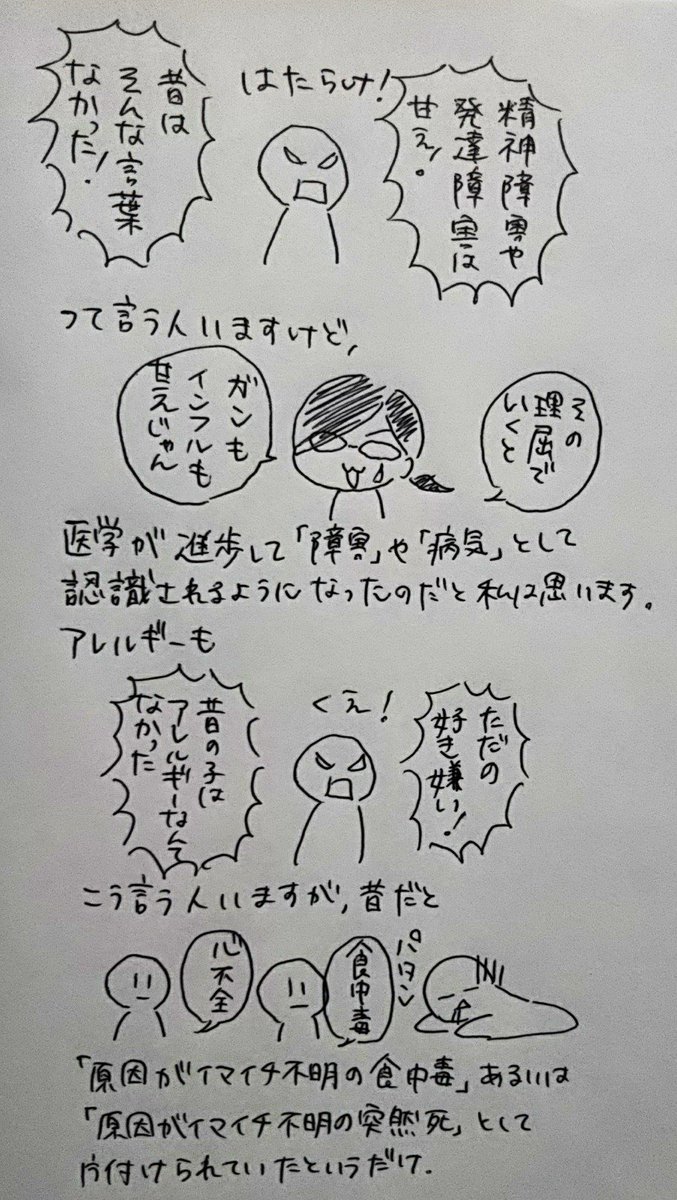 精神障害や
発達障害は
甘え!
はたらけ!
昔は
そんな言葉
なかった!
って言う人いますけど、
その
理屈で
いくと
ガンも
インフルも
甘えじゃん
医学が進歩して「障害」や「病気」として
認識されるようになったのだと私は思います。
アレルギーも
ただの
好き嫌い!
くえ!
昔の子は
アレルギーなんて
なかった
こう言う人いますが、昔だと
パタン
食中毒
心不全
「原因がイマイチ不明の食中毒」あるいは
「原因がイマイチ不明の突然死」として
片付けられていたというだけ.